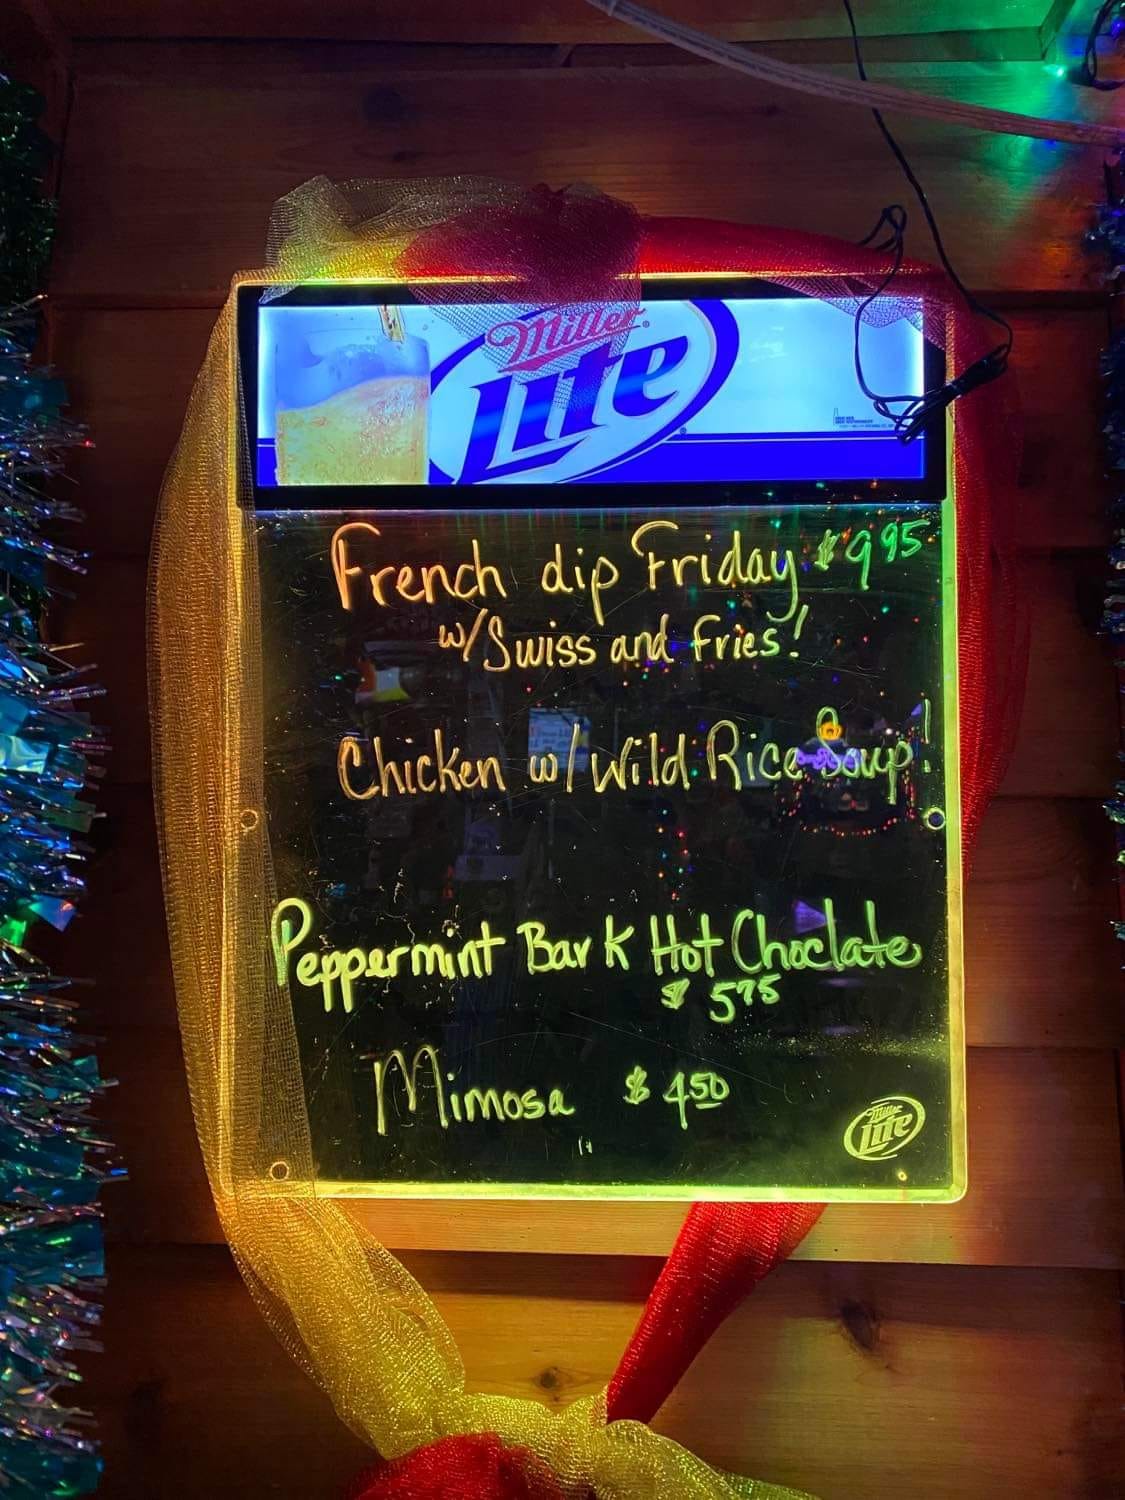 Miller
Lite
French dip Friday $9.95
w/Swiss and Fries!
Chicken w/ Wild Rice Soup!
Peppermint Bark Hot Choclate
$ 5.75
Mimosa $ 4.50
Miller
Lite